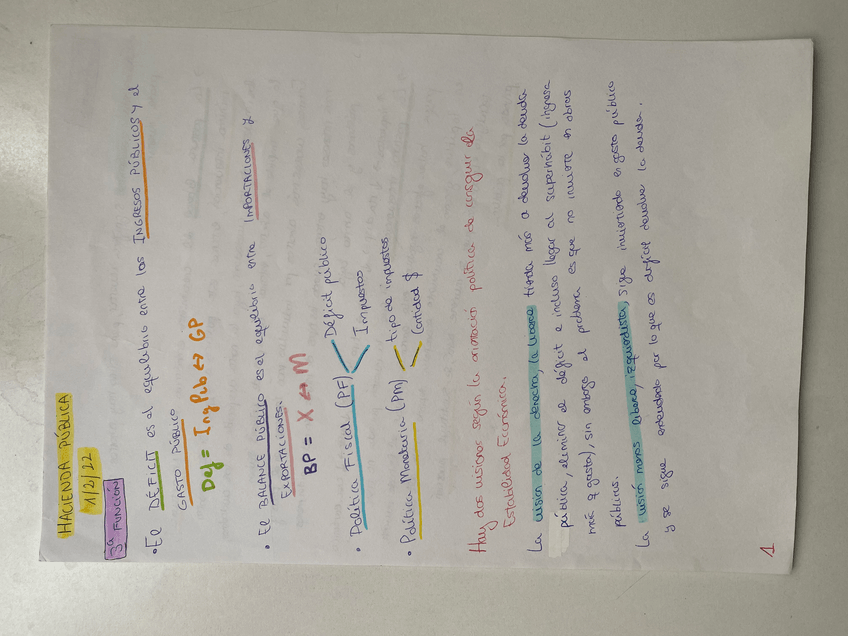 HACIENDA PÚBLICA
1/2/22
3ª FUNCIÓN
• El DÉFICIT es el equilibrio entre los INGRESOS PÚBLICOS y el
GASTO PÚBLICO
Def = IngPúb ↔ GP
• El BALANCE PÚBLICO es el equilibrio entre IMPORTACIONES y
EXPORTACIONES.
BP = X ↔ M
• Política Fiscal (PF) < Déficit público
Impuestos
• Política Monetaria (PM) < tipo de impuestos
Cantidad $
Hay dos visiones según la orientación política de conseguir la
Estabilidad Económica.
La visión de la derecha, la liberal tiende más a devolver la deuda
pública, eliminar el déficit e incluso llegar al superhábit (ingresa
más q gasta), sin embargo el problema es que no invierte en obras
públicas.
La visión menos liberal, izquierdista, sigue invirtiendo en gasto público
y se sigue endeudado por lo que es difícil devolver la deuda.
1